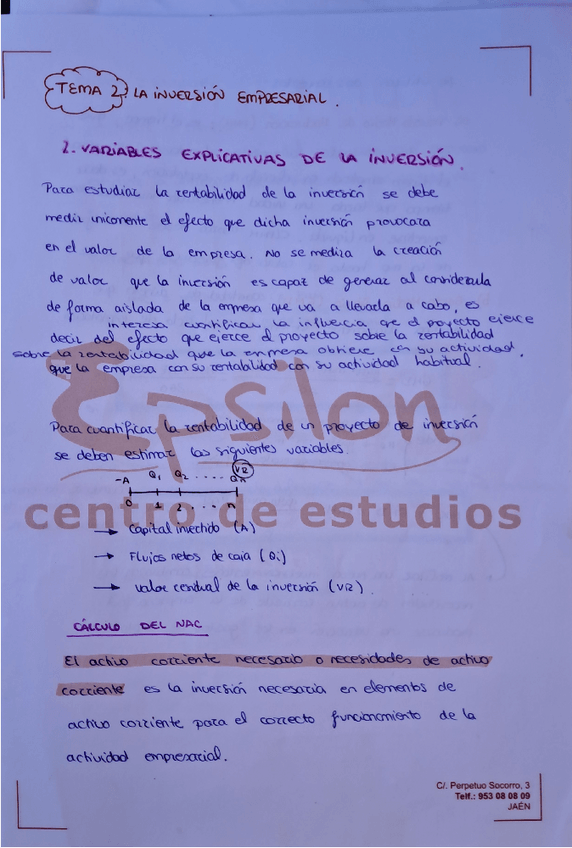 TEMA 2: LA INVERSIÓN EMPRESARIAL.
2. VARIABLES EXPLICATIVAS DE LA INVERSIÓN.
Para estudiar la rentabilidad de la inversión se debe
medir unicamente el efecto que dicha inversión provocara
en el valor de la empresa. No se medira la creación
de valor que la inversión es capaz de generar al considerarla
de forma aislada de la empresa que va a llevarla a cabo, es
interesa cuantificar la influencia que el proyecto ejerce
decir del efecto que ejerce el proyecto sobre la rentabilidad
sobre la rentabilidad que la empresa obtiene con su actividad.
que la empresa con su rentabilidad con su actividad habitual.
Epsilon
centro de estudios
Para cuantificar la rentabilidad de un proyecto de inversión
se deben estimar las siguientes variables.
VR
-A Q1 Q2 ..... Qn
0 1 2 ..... n
→ Capital invertido (A)
→ Flujos netos de caja (Qi)
→ Valor residual de la inversión (VR).
CÁLCULO DEL NAC
El activo corriente necesario o necesidades de activo
corriente es la inversión necesaria en elementos de
activo corriente para el correcto funcionamiento de la
actividad empresarial.
C/. Perpetuo Socorro, 3
Telf.: 953 08 08 09
JAÉN